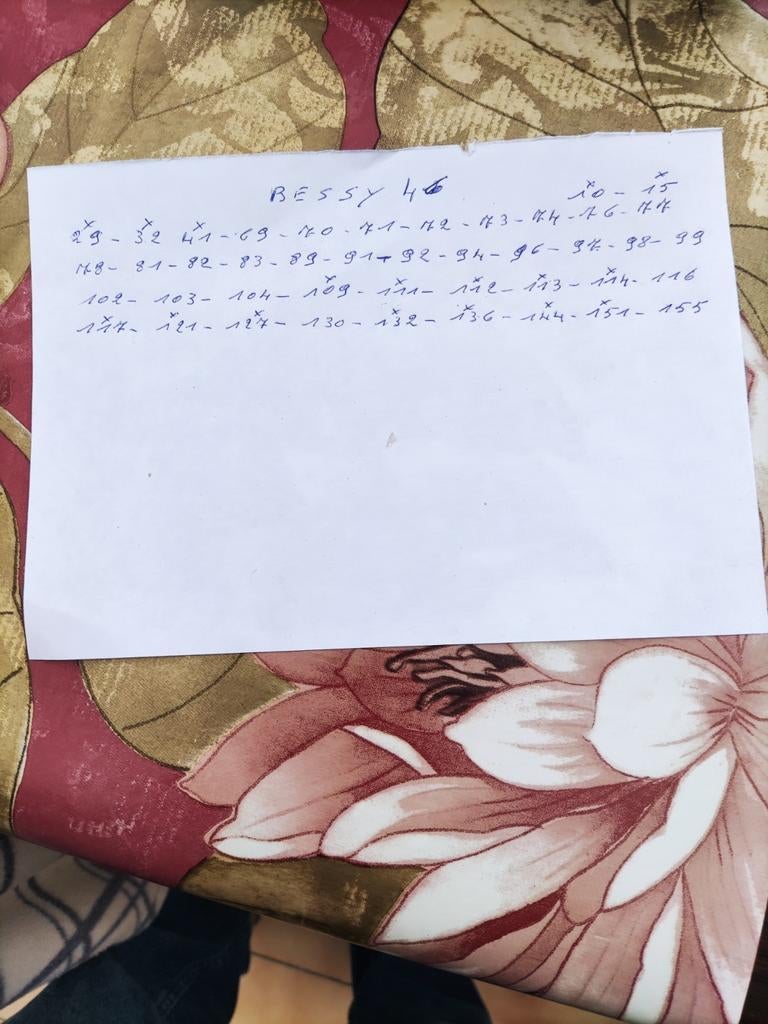 BESSY 46
10 - 15
29 - 32 41 - 69 - 70 - 71 - 72 - 73 - 74 - 76 - 77
78 - 81 - 82 - 83 - 89 - 91 - 92 - 94 - 96 - 97 - 98 - 99
102 - 103 - 104 - 109 - 111 - 112 - 113 - 114 - 116
117 - 121 - 127 - 130 - 132 - 136 - 144 - 151 - 155